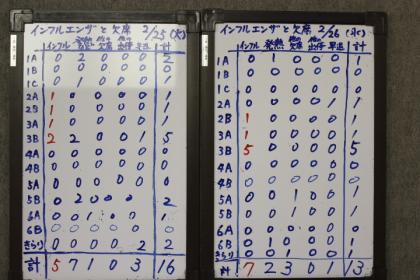 インフルエンザと欠席 2/25(火)
インフル 発熱 他の欠席 他の出停 早退 計
1A 0 2 0 0 0 2
1B 0 0 0 0 0 0
1C 0 0 0 0 0 0
2A 1 0 0 0 0 1
2B 1 0 0 0 0 1
3A 1 0 0 0 0 1
3B 2 2 0 0 1 5
4A 0 0 0 0 0 0
4B 0 0 0 0 0 0
5A 0 0 0 0 0 0
5B 0 2 0 0 0 2
6A 0 0 1 0 0 1
6B 0 0 0 0 0 0
きらり 0 0 0 0 2 2
計 5 7 1 0 3 16
インフルエンザと欠席 2/26(水)
インフル 発熱 他の欠席 他の出停 早退 計
1A 0 1 0 0 0 1
1B 0 0 0 0 0 0
1C 0 0 0 0 0 0
2A 0 0 0 0 1 1
2B 1 0 0 0 0 1
3A 1 0 0 0 0 1
3B 5 0 0 0 0 5
4A 0 0 0 0 0 0
4B 0 0 0 0 0 0
5A 0 0 1 0 0 1
5B 0 0 1 0 0 1
6A 0 0 0 0 0 0
6B 0 1 0 0 0 1
きらり 0 0 1 0 0 1
計 7 2 3 0 1 13